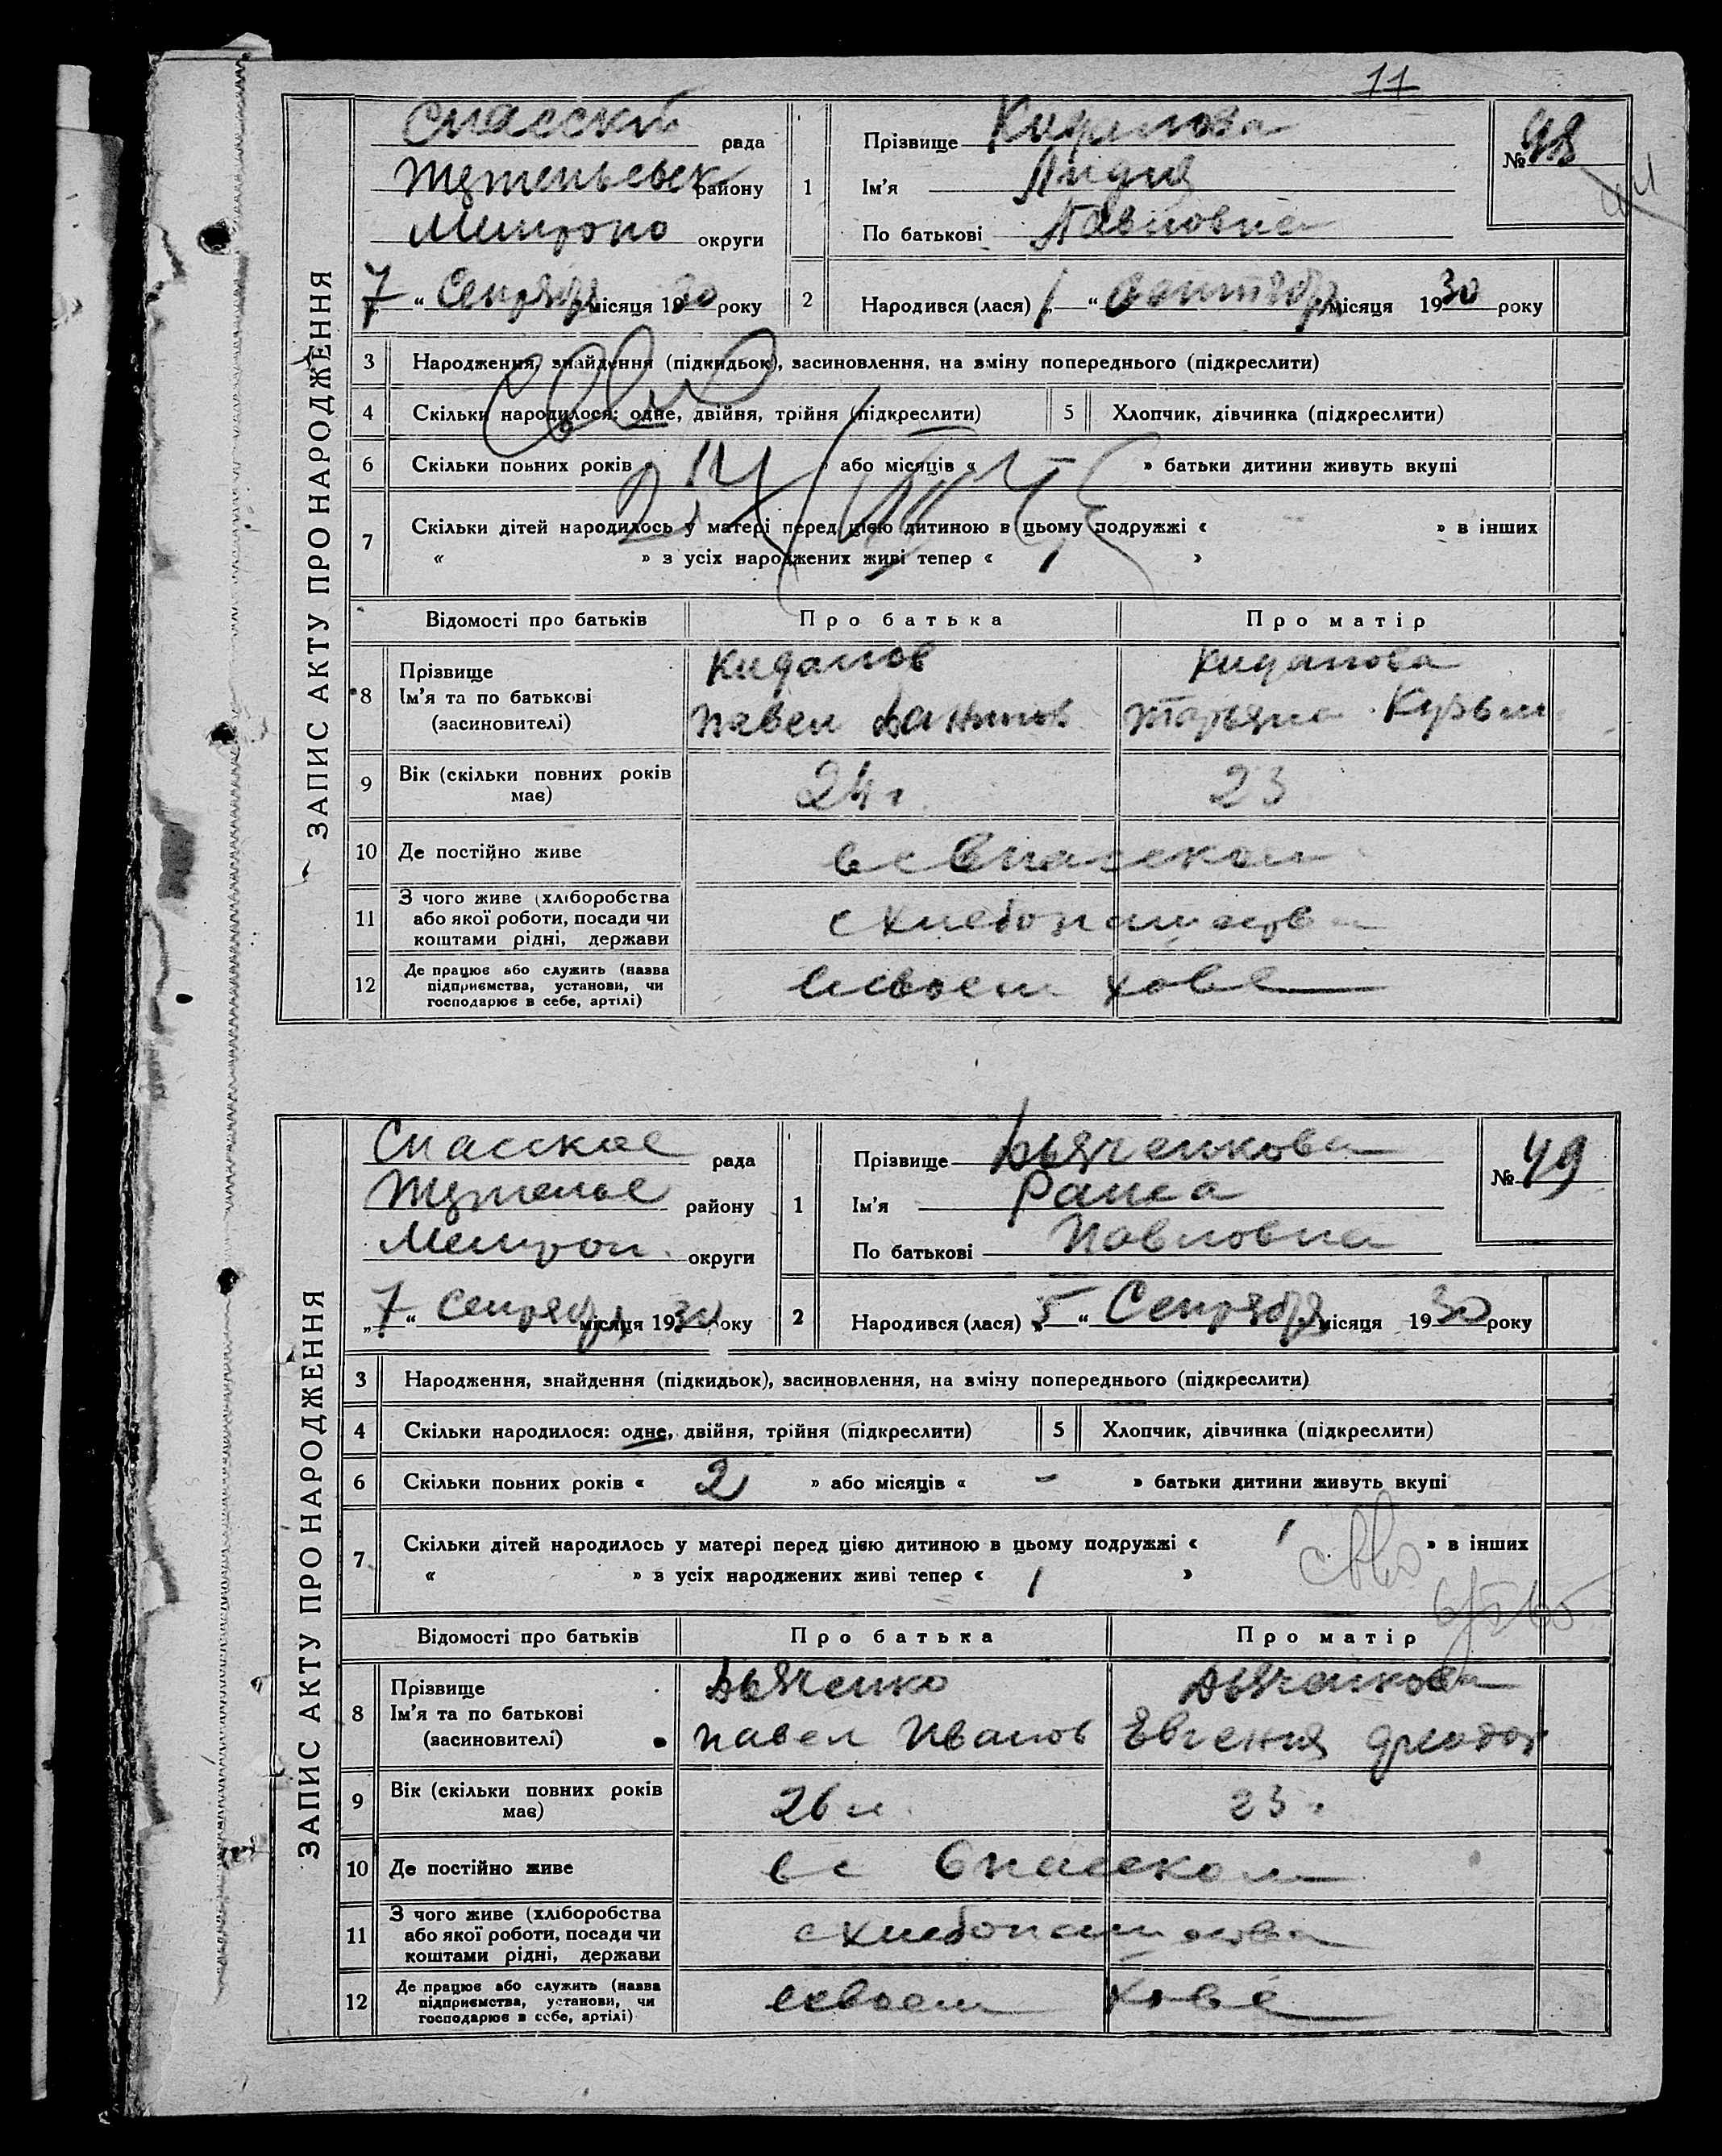 11
ЗАПИС АКТУ ПРО НАРОДЖЕННЯ
Спасский рада
району
округи
7 “ Сентября місяця 1930 року
1
Прізвище
Ім’я Лидия
По батькові Павловна
№ 48
2 Народився (лася) „1 “ сентября місяця 1930 року
3 Народження, знайдення (підкидьок), засиновлення, на зміну попереднього (підкреслити)
4 Скільки народилося: одне, двійня, трійня (підкреслити) 5 Хлопчик, дівчинка (підкреслити)
6 Скільки повних років » або місяців « – » батьки дитини живуть вкупі
7 Скільки дітей народилось у матері перед цією дитиною в цьому подружжі « - » в інших
« » з усіх народжених живі тепер « 1 »
Відомості про батьків Про батька Про матір
8 Прізвище
Ім’я та по батькові
(засиновителі)
Павел Данилов
Татьяна Кузьм
9 Вік (скільки повних років має) 24 г. 23
10 Де постійно живе в с Спасском
11 З чого живе (хліборобства або якої роботи, посади чи коштами рідні, держави с хлебопашества
12 Де працює або служить (назва підприємства, установи, чи господарює в себе, артілі) в своем хов-ве
ЗАПИС АКТУ ПРО НАРОДЖЕННЯ
Спаское рада
району
округи
„7 “ Сентября місяця 1930 року
1
Прізвище Дьяченкова
Ім’я Раиса
По батькові Павловна
№ 49
2 Народився (лася) „5 “ Сентября місяця 1930 року
3 Народження, знайдення (підкидьок), засиновлення, на зміну попереднього (підкреслити)
4 Скільки народилося: одне, двійня, трійня (підкреслити) 5 Хлопчик, дівчинка (підкреслити)
6 Скільки повних років « 2 » або місяців « – » батьки дитини живуть вкупі
7 Скільки дітей народилось у матері перед цією дитиною в цьому подружжі « 1 » в інших
« » з усіх народжених живі тепер « 1 »
Відомості про батьків Про батька Про матір
8 Прізвище
Ім’я та по батькові
(засиновителі)
Дьяченко
Павел Иванов
Дьяченкова
Евгения
9 Вік (скільки повних років має) 26 л. 23 г
10 Де постійно живе в с Спасском
11 З чого живе (хліборобства або якої роботи, посади чи коштами рідні, держави с хлебопашества
12 Де працює або служить (назва підприємства, установи, чи господарює в себе, артілі) в своем